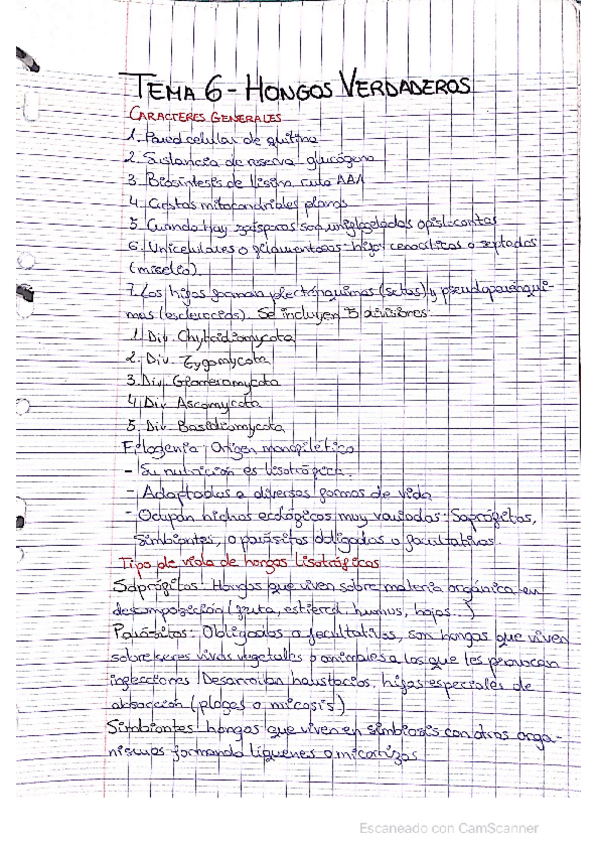 TEMA 6 - HONGOS VERDADEROS
CARACTERES GENERALES
1. Pared celular de quitina
2. Sustancia de reserva glucógeno
3. Biosíntesis de lisina ruta AAA
4. Crestas mitocondriales planas
5. Cuando hay zoósporas son uniflageladas opistocontas
6. Unicelulares o filamentosos: hifas cenocíticas o septadas
(micelio).
7. Los hifas forman plecténquimas (setas) y pseudoparénqui-
mas (esclerocios). Se incluyen 5 divisiones:
1. Div. Chytridiomycota
2. Div. Zygomycota
3. Div. Glomeromycota
4. Div. Ascomycota
5. Div. Basidiomycota
Filogenia: Origen monofilético
- Su nutrición es lisotrófica.
- Adaptados a diversas formas de vida
- Ocupan nichos ecológicos muy variados: Saprófitos,
Simbiontes, o parásitos obligados o facultativos.
Tipo de vida de hongos lisotróficos
Saprófitos: Hongos que viven sobre materia orgánica en
descomposición (fruta, estiercol, humus, hojas...)
Parásitos: Obligados o facultativos, son hongos que viven
sobre seres vivos vegetales o animales a los que les provocan
infecciones. Desarrollan haustorios, hifas especiales de
absorción (plagas o micosis)
Simbiontes: hongos que viven en simbiosis con otros orga-
nismos formando líquenes o micorrizas
Escaneado con CamScanner